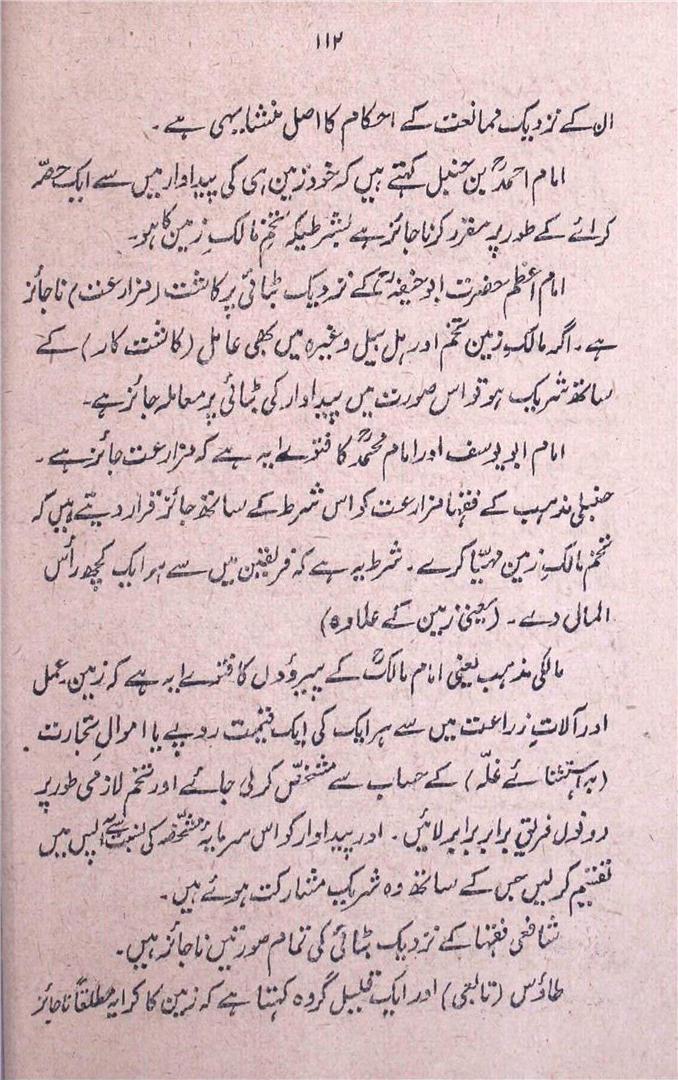 ۱۱۲
ان کے نزدیک ممانعت کے احکام کا اصل منشا یہی ہے ۔
امام احمدؒ بن حنبل کہتے ہیں کہ خود زمین ہی کی پیداوار میں سے ایک حصّہ
کرائے کے طور پر مقرر کرنا جائز ہے بشرطیکہ تخم مالکِ زمین کا ہو۔
امام اعظم حضرت ابو حنیفہؒ کے نزدیک بٹائی پر کاشت (مزارعت) ناجائز
ہے ۔ اگر مالکِ زمین تخم اور ہل بیل وغیرہ میں بھی عامل (کاشت کار) کے
ساتھ شریک ہو تو اس صورت میں پیداوار کی بٹائی پر معاملہ جائز ہے۔
امام ابو یوسف اور امام محمدؒ کا فتوےٰ یہ ہے کہ مزارعت جائز ہے ۔
حنبلی مذہب کے فقہا مزارعت کو اس شرط کے ساتھ جائز قرار دیتے ہیں کہ
تخم مالکِ زمین مہیّا کرے ۔ شرط یہ ہے کہ فریقین میں سے ہر ایک کچھ راس
المال دے ۔ (یعنی زمین کے علاوہ)
مالکی مذہب یعنی امام مالکؒ کے پیروؤں کا فتوےٰ یہ ہے کہ زمین۔ عمل
اور آلاتِ زراعت میں سے ہر ایک کی ایک قیمت روپے یا اموالِ تجارت
(بہ استثنائے غلّہ) کے حساب سے مشخّص کر لی جائے اور تخم لازمی طور پر
دونوں فریق برابر برابر لائیں ۔ اور پیداوار کو اس سرمایۂ مشخّصہ کی نسبت سے آپس میں
تقسیم کر لیں جس کے ساتھ وہ شریکِ مشارکت ہوئے ہیں۔
شافعی فقہا کے نزدیک بٹائی کی تمام صورتیں ناجائز ہیں۔
طاؤس (تابعی) اور ایک قلیل گروہ کہتا ہے کہ زمین کا کرایہ مطلقاً ناجائز